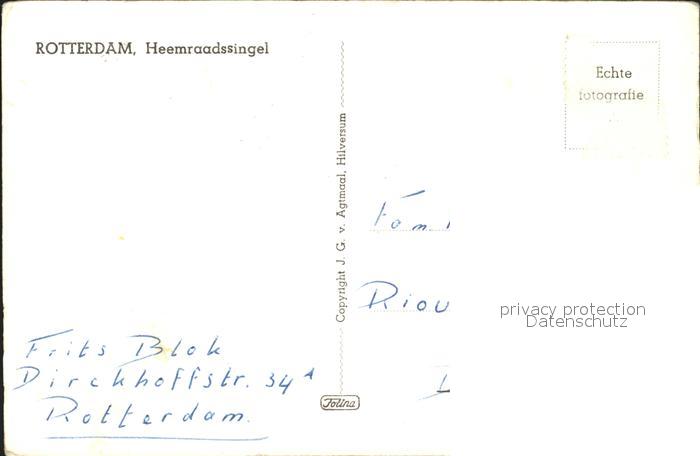 ROTTERDAM, Heemraadssingel
Echte
fotografie
Copyright J. G. v. Agtmaal, Hilversum
Fam.
Riou
privacy protection
Datenschutz
Frits Blok
Dirckhoffstr. 34A
Rotterdam.
Jolina